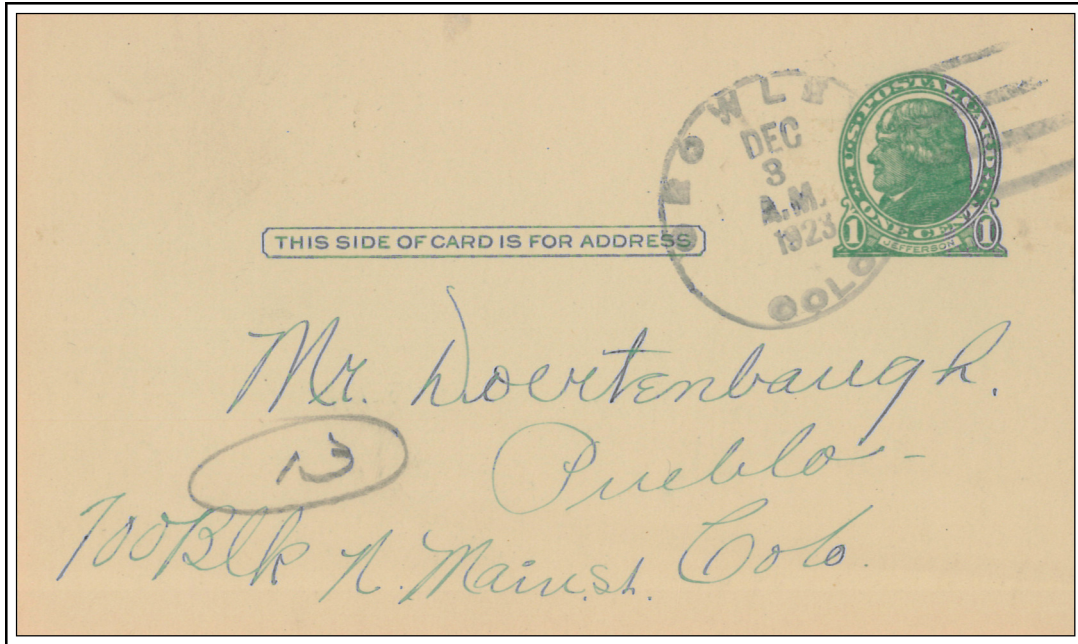 CROWLEY
DEC
3
A.M.
1923
COLO
U.S. POSTAL CARD
ONE CENT
1 JEFFERSON 1
THIS SIDE OF CARD IS FOR ADDRESS
Mr. Doertenbaugh.
Pueblo -
700 Blk N. Main. St. Colo.